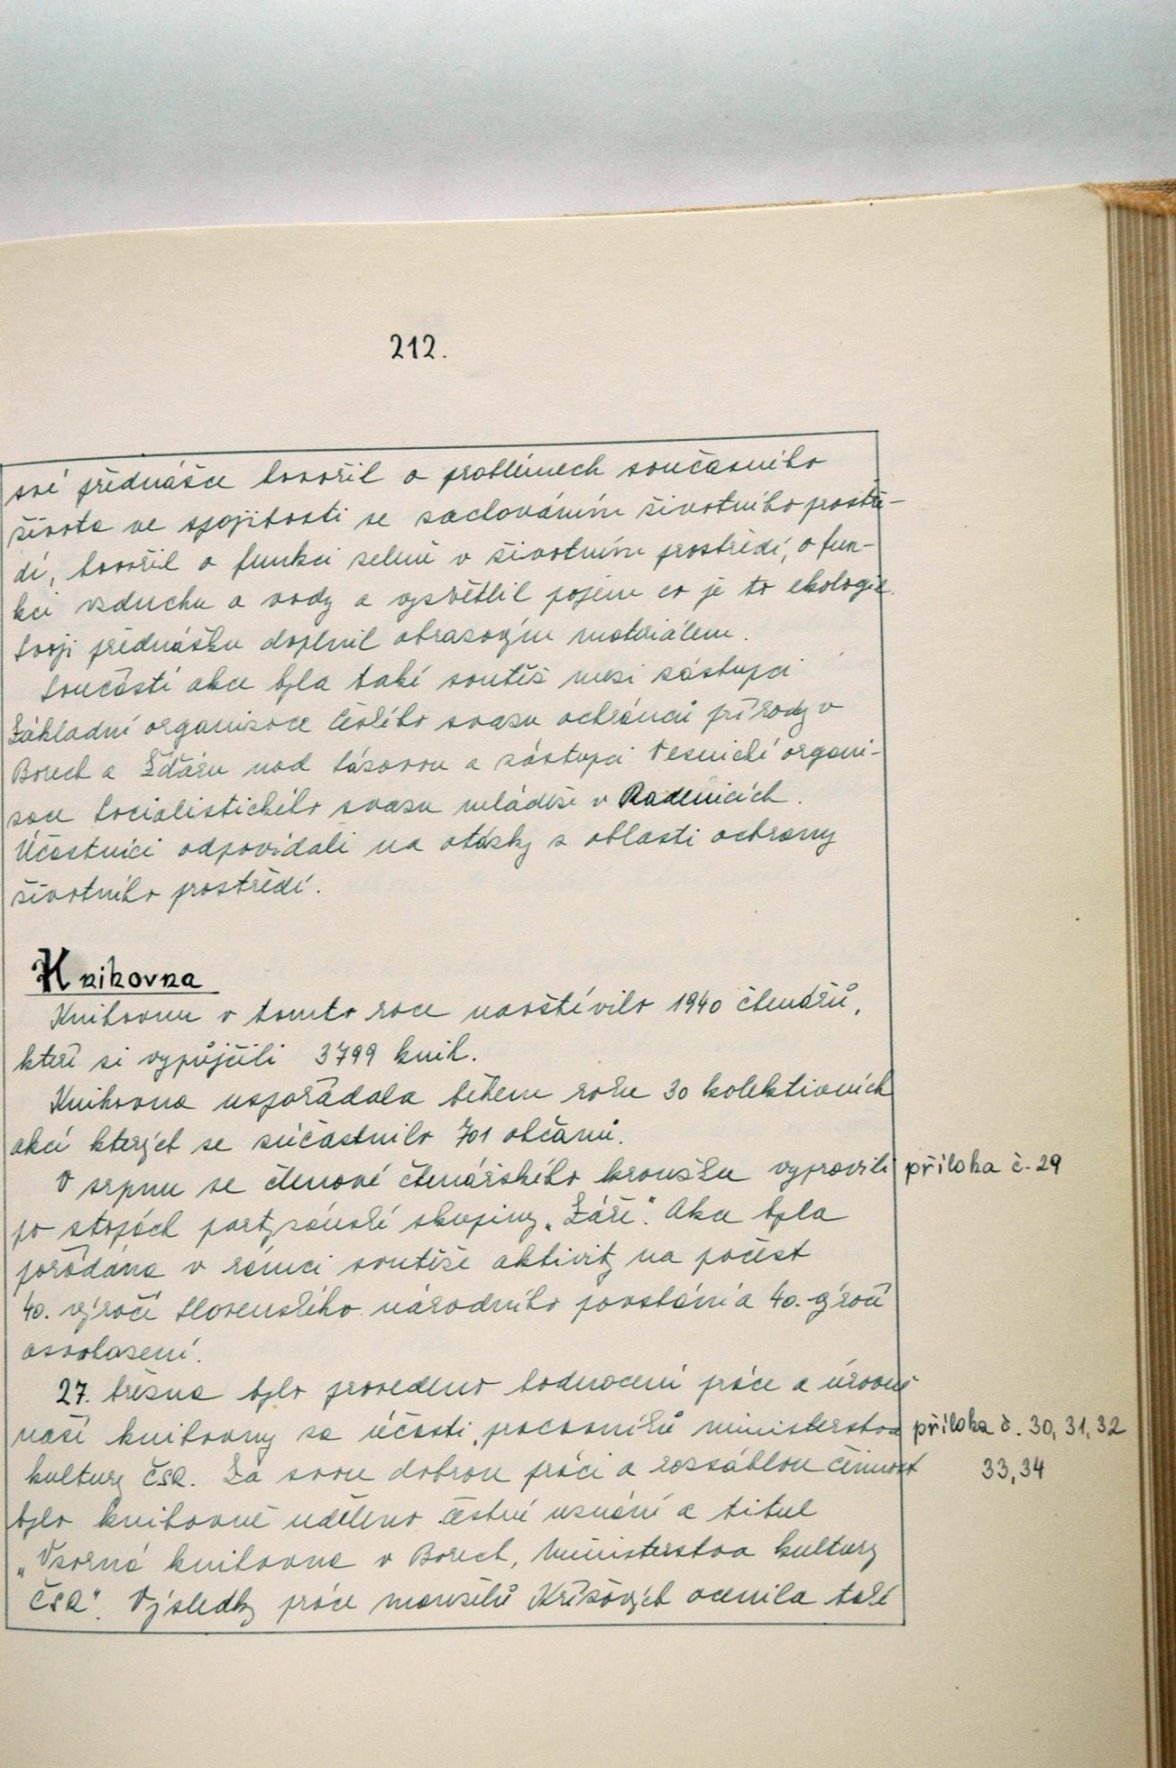 212.
své přednášce hovořil o problémech současného
života ve spojitosti se zachováním životního prostře-
dí, hovořil o funkci zeleně v životním prostředí, o fun-
kci vzduchu a vody a vysvětlil pojem co je to ekologie.
Svoji přednášku doplnil obrazovým materiálem.
Součástí akce byla také soutěž mezi zástupci
Základní organizace Českého svazu ochránců přírody v
Borech a Žďáru nad Sázavou a zástupci Vesnické organi-
zace Socialistického svazu mládeže v Radenicích.
Účastníci odpovídali na otázky z oblasti ochrany
životního prostředí.
Knihovna
Knihovnu v tomto roce navštívilo 1940 čtenářů,
kteří si vypůjčili 3799 knih.
Knihovna uspořádala během roku 30 kolektivních
akcí kterých se zúčastnilo 701 občanů.
V srpnu se členové čtenářského kroužku vypravili
příloha č. 29
po stopách partyzánské skupiny „Záře“. Akce byla
pořádána v rámci soutěže aktivity na počest
40. výročí Slovenského národního povstání a 40. výročí
osvobození.
27. března bylo provedeno hodnocení práce a úrovně
naší knihovny za účasti pracovníků ministerstva
příloha č. 30, 31, 32
kultury ČSR. Za svou dobrou práci a rozsáhlou činnost
33, 34
bylo knihovně uděleno čestné uznání a titul
„Vzorná knihovna v Borech, Ministerstva kultury
ČSR“. Výsledky práce manželů Křížových ocenila také